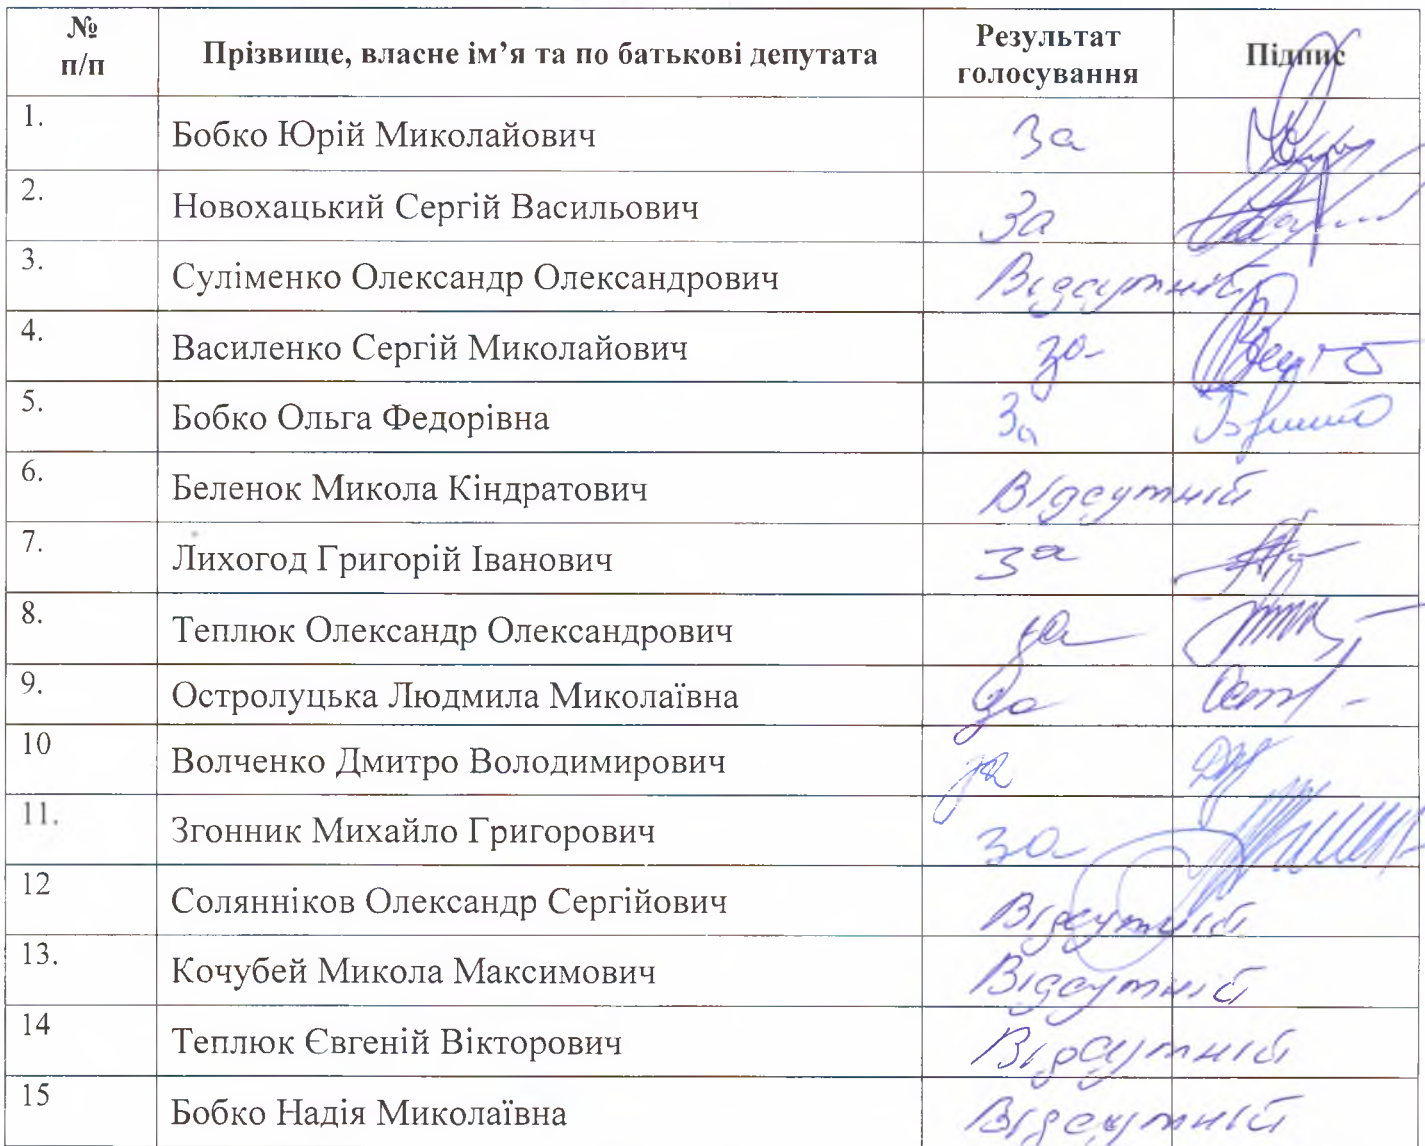 № п/п Прізвище, власне ім’я та по батькові депутата Результат голосування Підпис
1. Бобко Юрій Миколайович За
2. Новохацький Сергій Васильович За
3. Суліменко Олександр Олександрович Відсутній
4. Василенко Сергій Миколайович за
5. Бобко Ольга Федорівна За
6. Беленок Микола Кіндратович Відсутній
7. Лихогод Григорій Іванович За
8. Теплюк Олександр Олександрович за
9. Остролуцька Людмила Миколаївна За
10 Волченко Дмитро Володимирович за
11. Згонник Михайло Григорович за
12 Солянніков Олександр Сергійович Відсутній
13. Кочубей Микола Максимович Відсутній
14 Теплюк Євгеній Вікторович Відсутній
15 Бобко Надія Миколаївна Відсутній